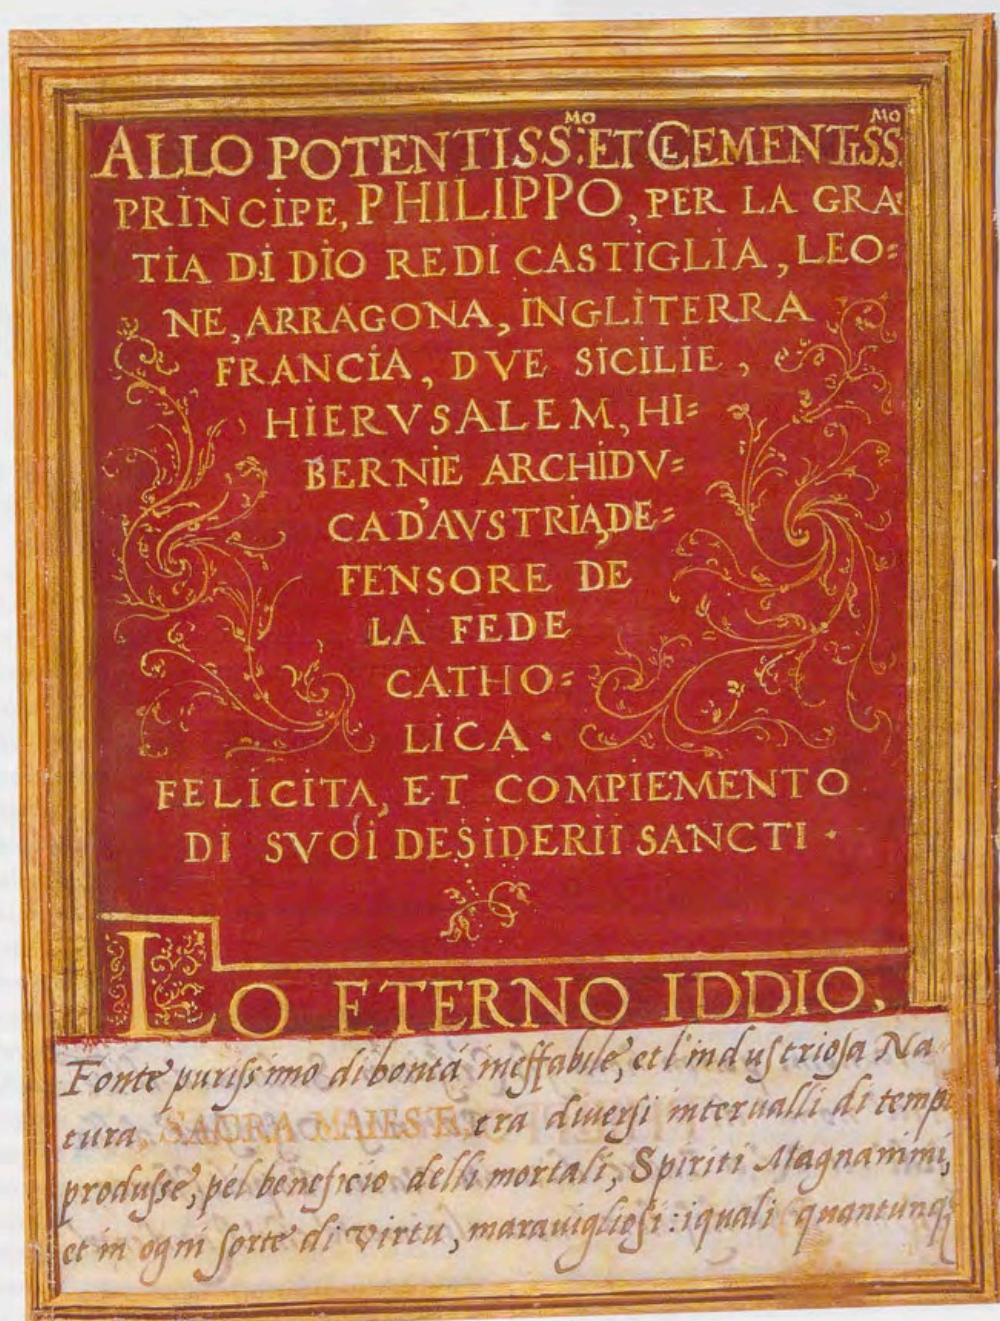 ALLO POTENTISS.MO ET CLEMENTISS.MO
PRINCIPE, PHILIPPO, PER LA GRA
TIA DI DIO RE DI CASTIGLIA, LEO=
NE, ARRAGONA, INGLITERRA
FRANCIA, DVE SICILIE,
HIERVSALEM, HI=
BERNIE ARCHIDV=
CA D'AVSTRIA, DE=
FENSORE DE
LA FEDE
CATHO=
LICA.
FELICITA, ET COMPIEMENTO
DI SVOI DESIDERII SANCTI.
LO ETERNO IDDIO,
Fonte purissimo di bontá ineffabile, et l'industriosa Na
tura, SACRA MAIESTÁ, tra diuersi interualli di tempi
produsse, pel beneficio delli mortali, Spiriti Magnanimi,
et in ogni sorte di virtu, marauigliosi: iquali quantunq;